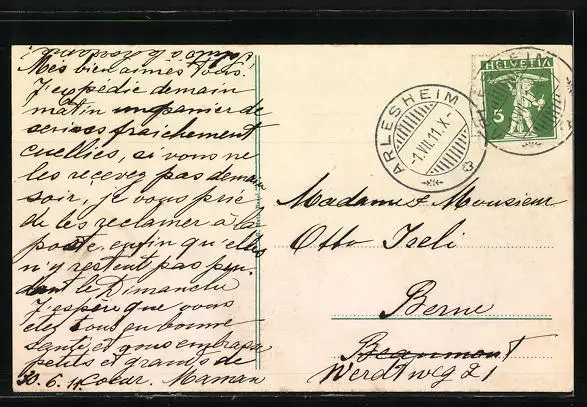 Mes bien aimés Tous!
J'expédie demain
matin un panier de
cerises fraichement
cueillies, si vous ne
les recevez pas demain
soir, je vous prie
de les reclamer à la
poste, enfin qu'elles
n'y restent pas pen-
dant le Dimanche
J'espère que vous
etes tous en bonne
santé, et vous embrasse
petits et grands de
30.6.11. coeur. Maman
HELVETIA
5
ARLESHEIM
-1.VII.11.X-
Madame & Monsieur
Otto Iseli
Berne
Beaumont
Werdtweg 21